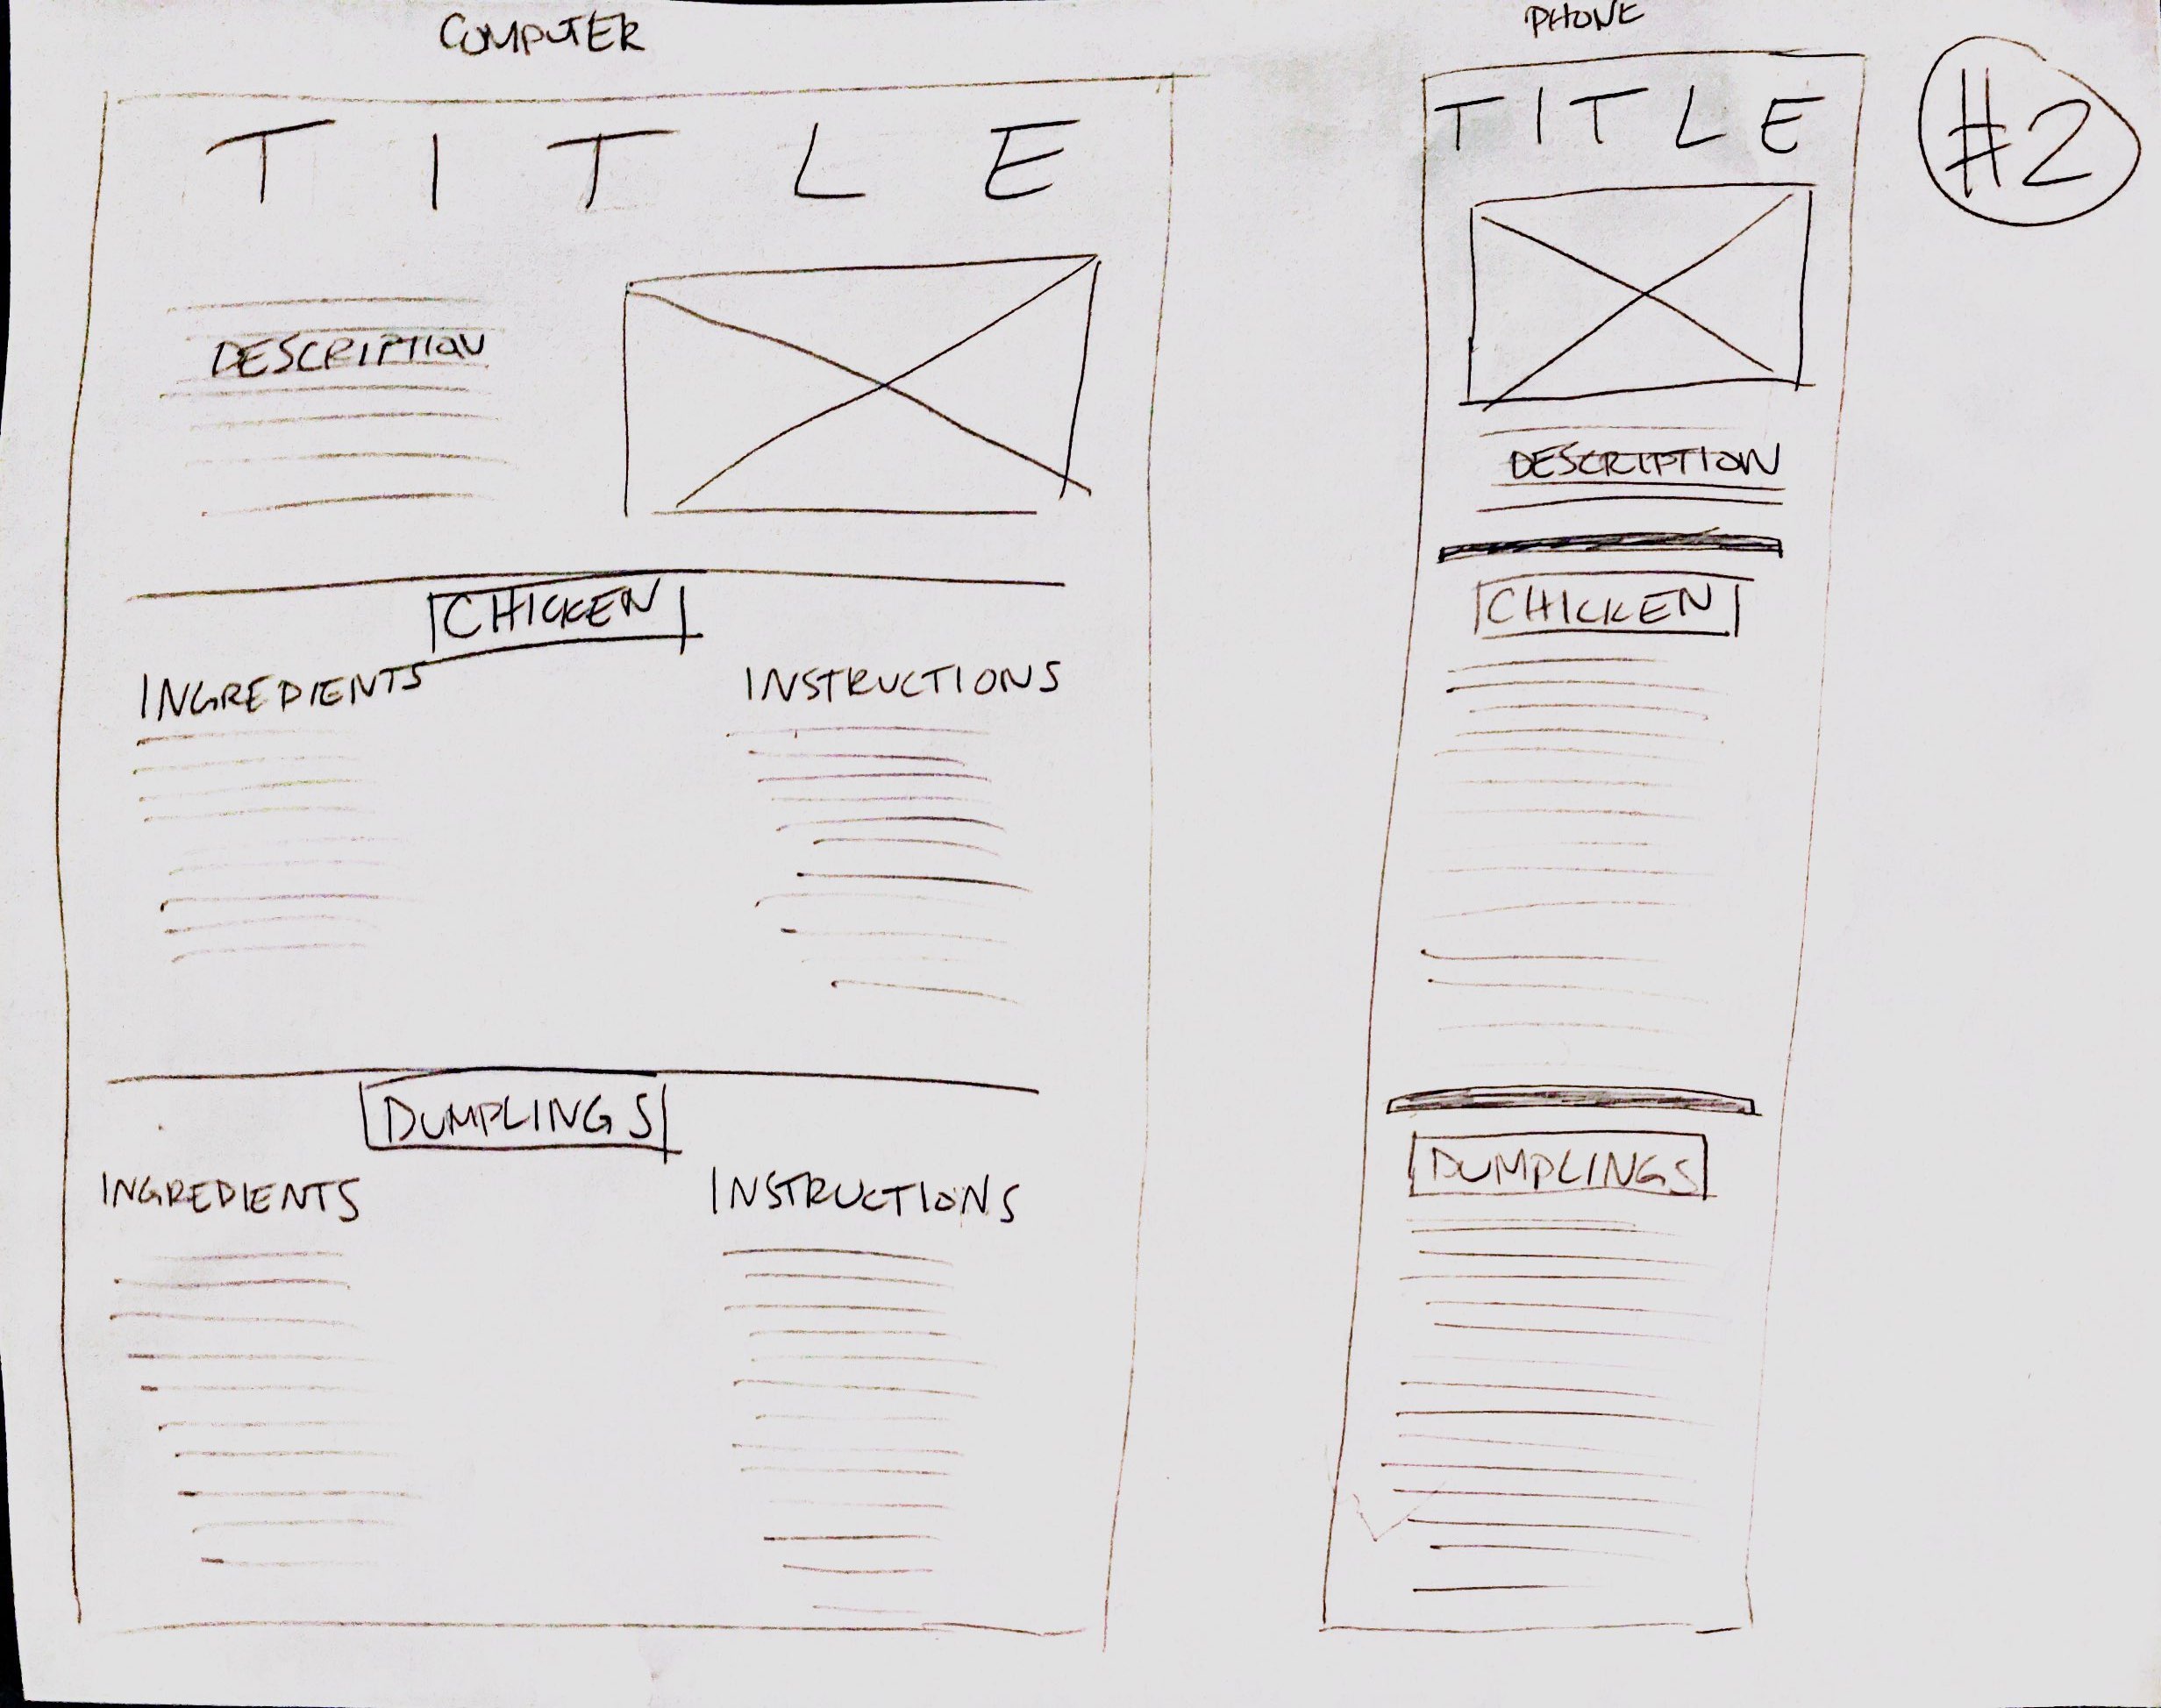 COMPUTER
TITLE
DESCRIPTION
CHICKEN
INGREDIENTS INSTRUCTIONS
DUMPLINGS
INGREDIENTS INSTRUCTIONS
PHONE
#2
TITLE
DESCRIPTION
CHICKEN
DUMPLINGS